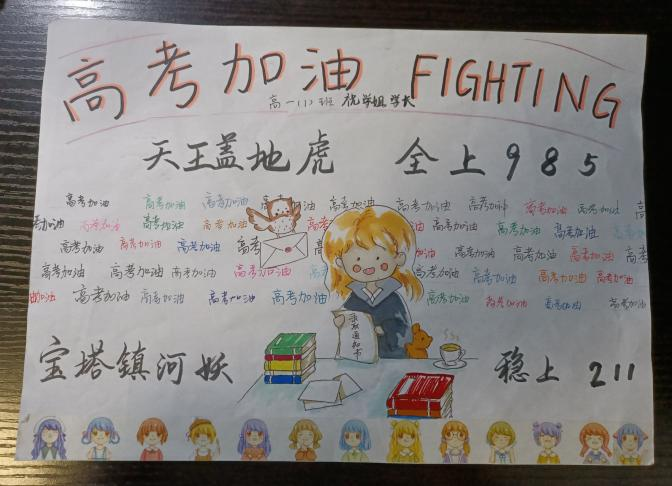 高考加油 FIGHTING
高一(1)班 祝学姐学长
天王盖地虎 全上985
高考加油 高考加油 高考加油 高考加油 高考加油 高考加油 高考加油 高考加油 高考加油 高
考加油 高考加油 高考加油 高考加油 高考 高考 加油 高考加油 高考加油 高考加油
高考加油 高考加油 高考加油 高考 加油 高考加油 高考加油 高考加油 高考
高考加油 高考加油 高考加油 高考加油 高考加油 高考加油 高考加油 高考加油
加油 高考加油 高考加油 高考加油 高考加油 高考加油 高考加油 高考加油 高考加油
录取通知书
宝塔镇河妖 稳上 211